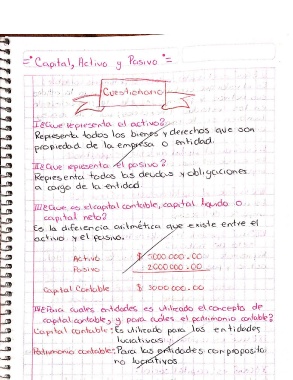 ="Capital, Activo y Pasivo"=
Cuestionario
I¿Que representa el activo?
Representa todos los bienes y derechos que son
propiedad de la empresa o entidad.
II¿Que representa el pasivo?
Representa todas las deudas y obligaciones
a cargo de la entidad
III¿Que es el capital contable, capital liquido o
capital neto?
Es la diferencia aritmética que existe entre el
activo y el pasivo.
Activo $ 5000 000.00
Pasivo 2000 000.00
Capital Contable $ 3000 000.00
IV¿Para cuales entidades es utilizado el concepto de
capital contable, y para cuales el patrimonio contable?
Capital contable: Es utilizado para las entidades
lucrativas
Patrimonio contable: Para las entidades con proposito
no lucrativos